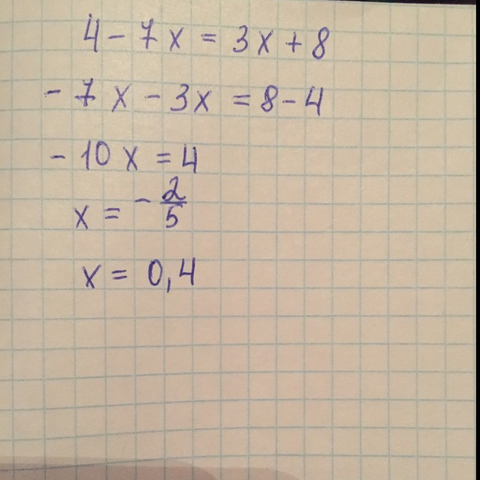 4 - 7x = 3x + 8
- 7x - 3x = 8 - 4
- 10x = 4
x = - 2/5
x = 0,4